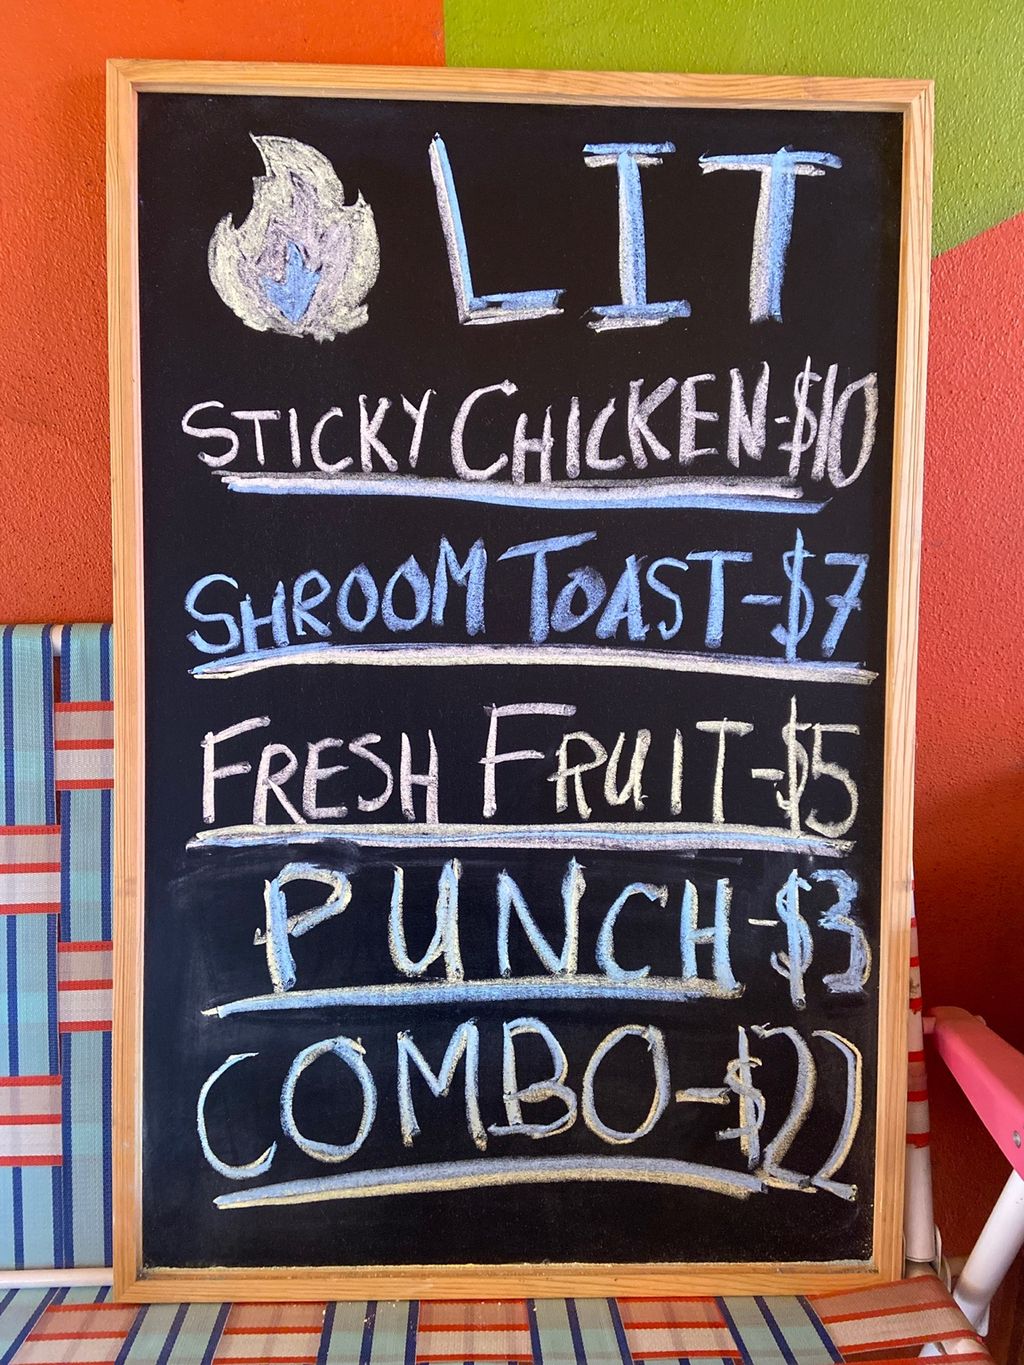 LIT
STICKY CHICKEN-$10
SHROOM TOAST-$7
FRESH FRUIT-$5
PUNCH-$3
COMBO-$22